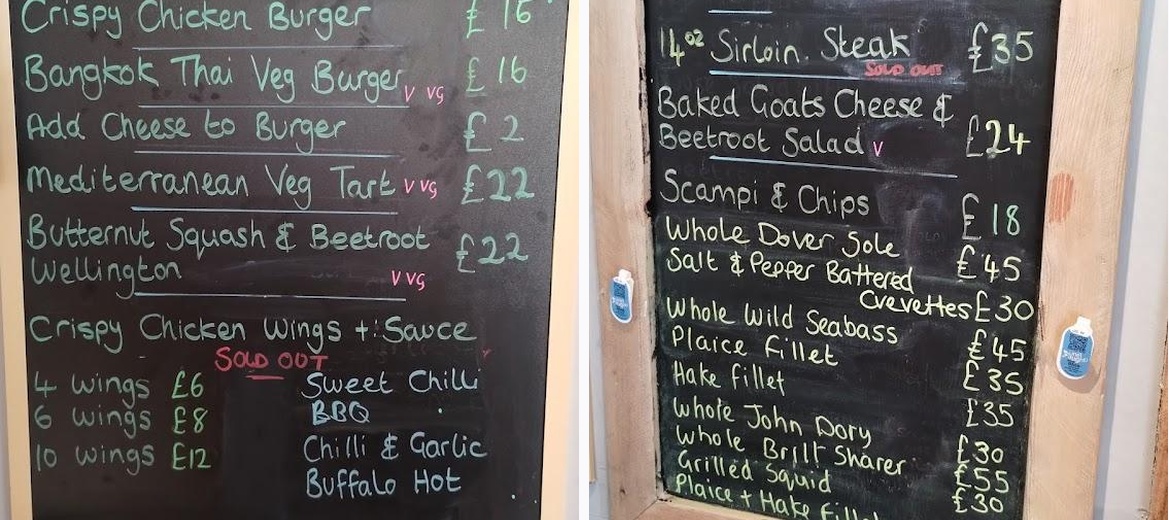 Crispy Chicken Burger £16
Bangkok Thai Veg Burger V VG £16
Add Cheese to Burger £2
Mediterranean Veg Tart V VG £22
Butternut Squash & Beetroot £22
Wellington V VG
Crispy Chicken Wings + Sauce
SOLD OUT
4 wings £6 Sweet Chilli
6 wings £8 BBQ
10 wings £12 Chilli & Garlic
Buffalo Hot
14oz Sirloin Steak £35
SOLD OUT
Baked Goats Cheese &
Beetroot Salad V £24
Scampi & Chips £18
Whole Dover Sole £45
Salt & Pepper Battered
Crevettes £30
Whole Wild Seabass £45
Plaice Fillet £35
Hake Fillet £35
Whole John Dory £30
Whole Brill Sharer £55
Grilled Squid £30
Plaice + Hake Fillet